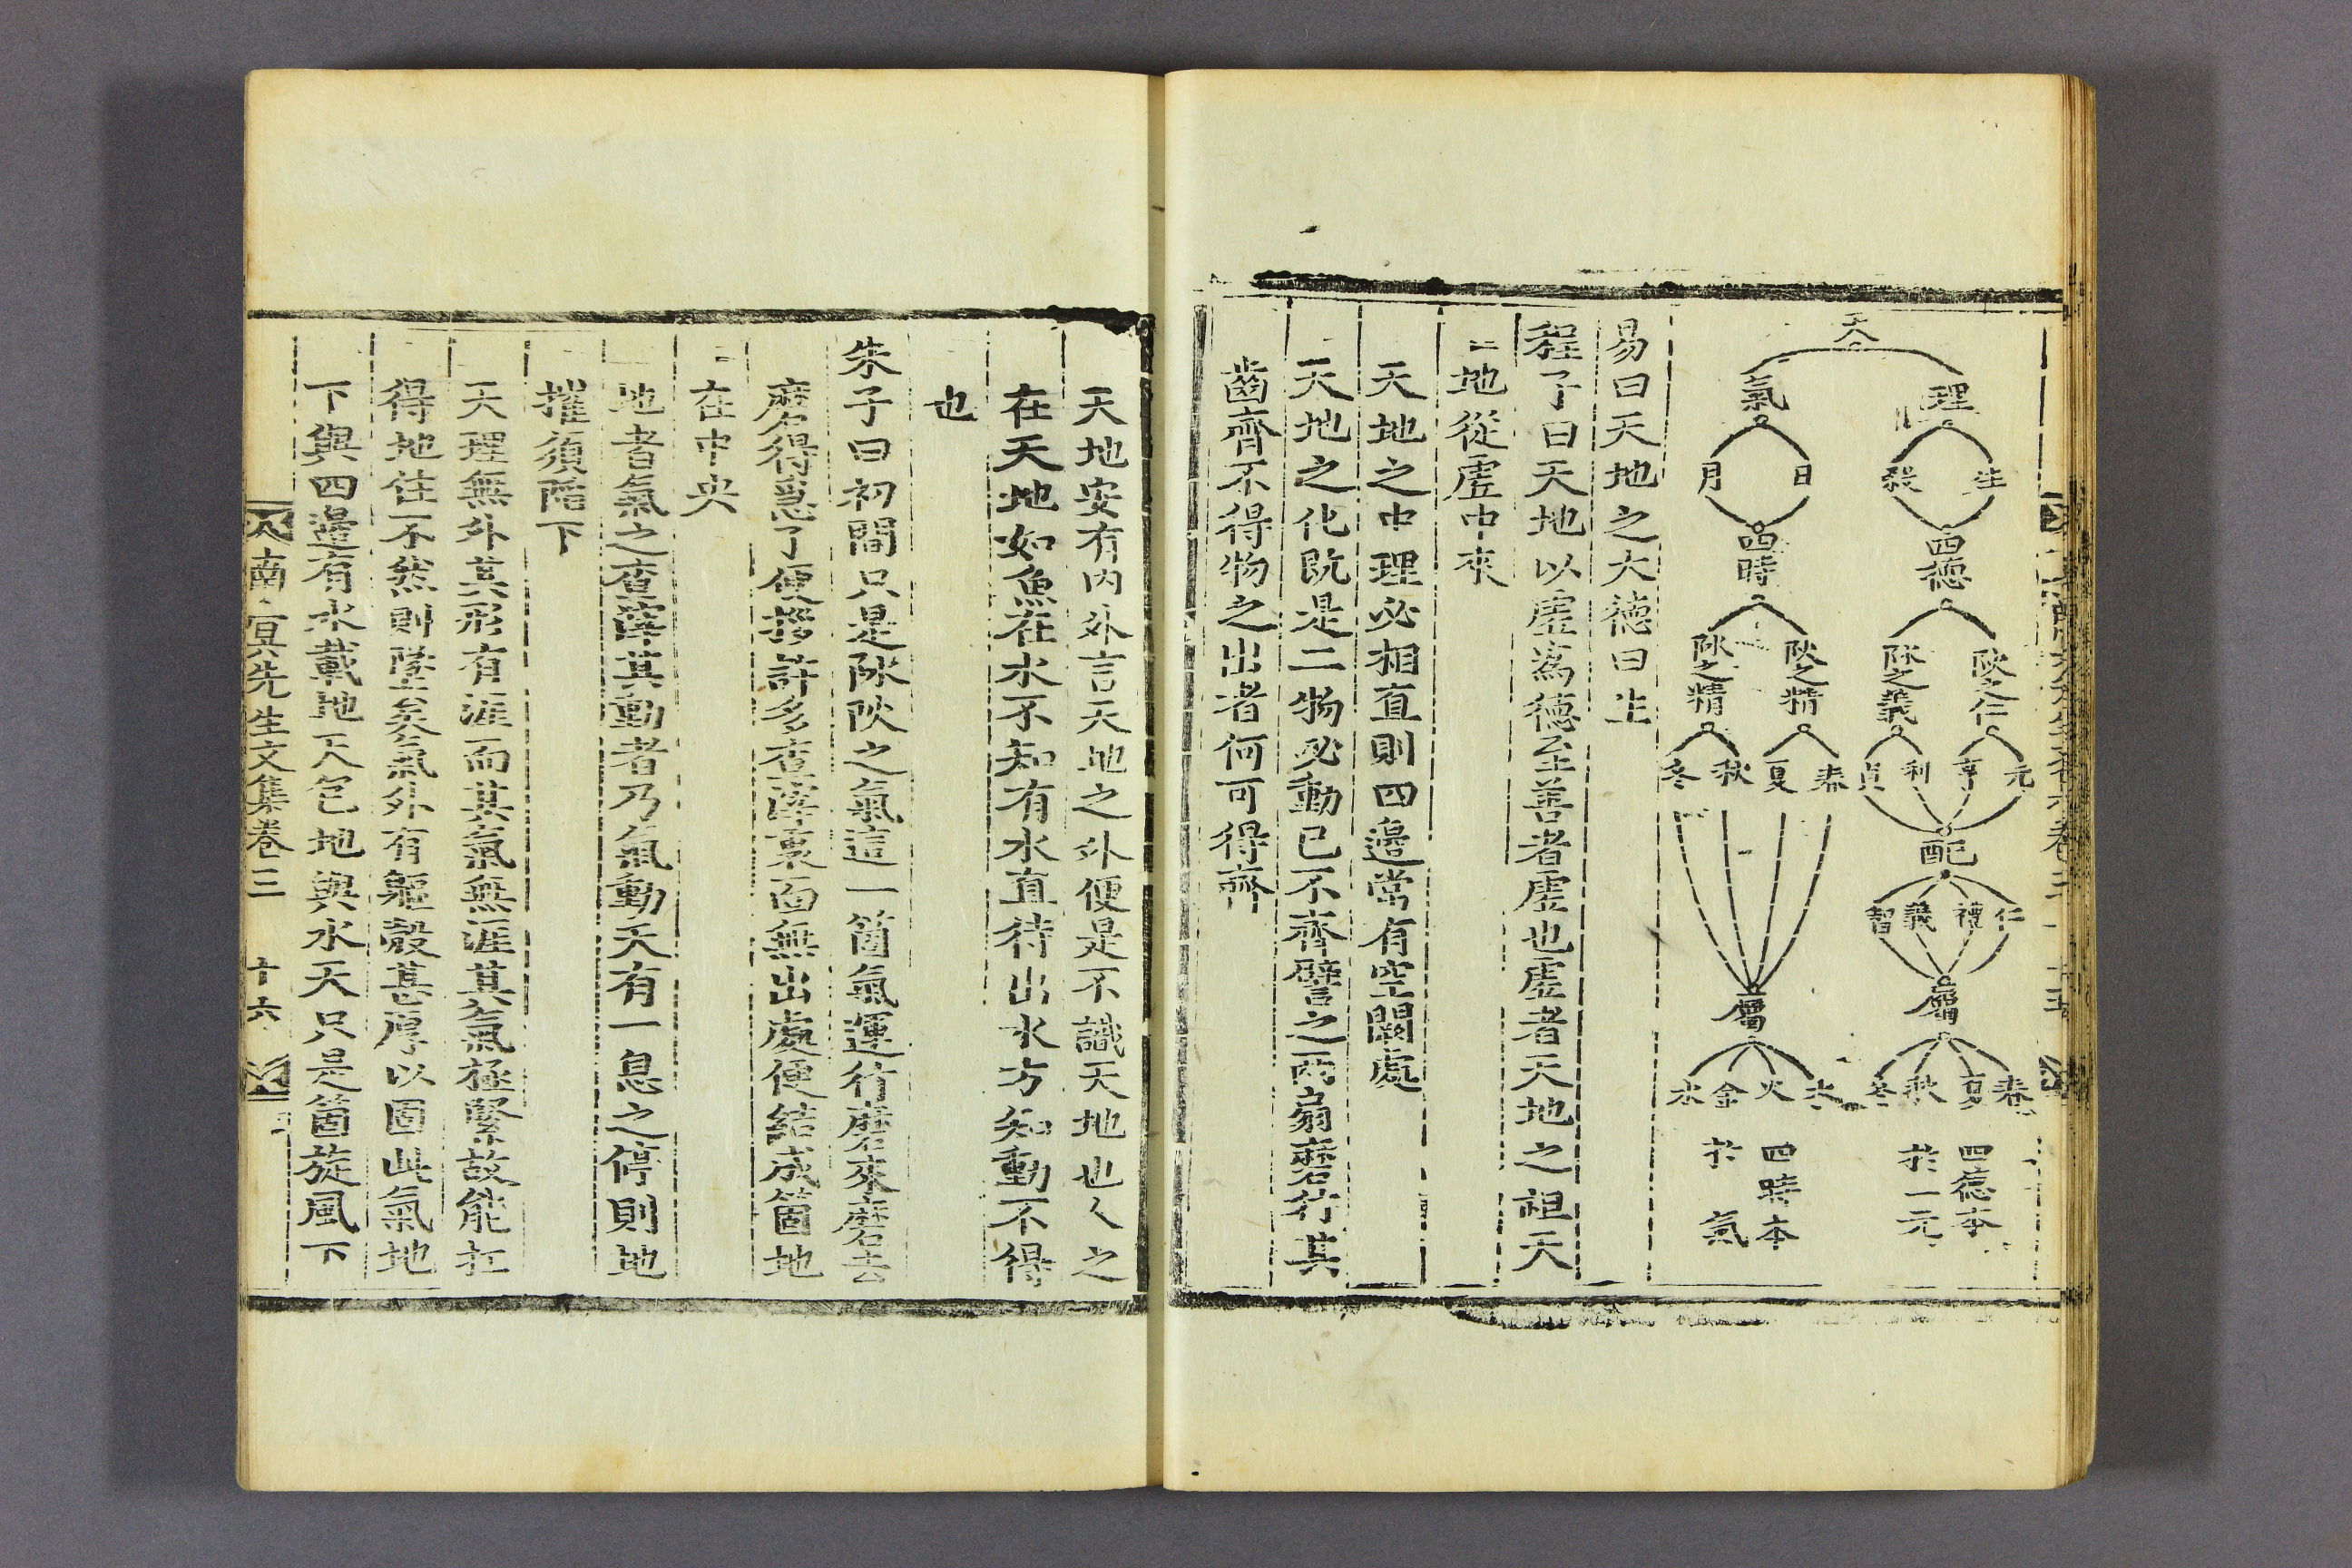 天
理
氣
生
殺
日
月
四德
四時
陽之仁
陰之義
陽之精
陰之精
元
亨
利
貞
春
夏
秋
冬
配
仁
禮
義
智
屬
屬
春
夏
秋
冬
木
火
金
水
四德本
於一元
四時本
於 氣
易曰天地之大德曰生
程子曰天地以虛爲德至善者虛也虛者天地之祖天
地從虛中來
天地之中理必相直則四邉當有空闕處
天地之化旣是二物必動已不齊譬之兩扇磨行其
齒齊不得物之出者何可得齊
天地安有內外言天地之外便是不識天地也人之
在天地如魚在水不知有水直待出水方知動不得
也
朱子曰初間只是陰陽之氣這一箇氣運行磨來磨去
磨得急了便拶許多査滓裏面無出處便結成箇地
在中央
地者氣之査滓其動者乃氣動天有一息之停則地
摧須陷下
天理無外其形有涯而其氣無涯其氣極緊故能扛
得地住不然則墜矣氣外有軀殼甚厚以固此氣地
下與四邉有水載地天包地與水天只是箇旋風下
南冥先生文集卷三 十六